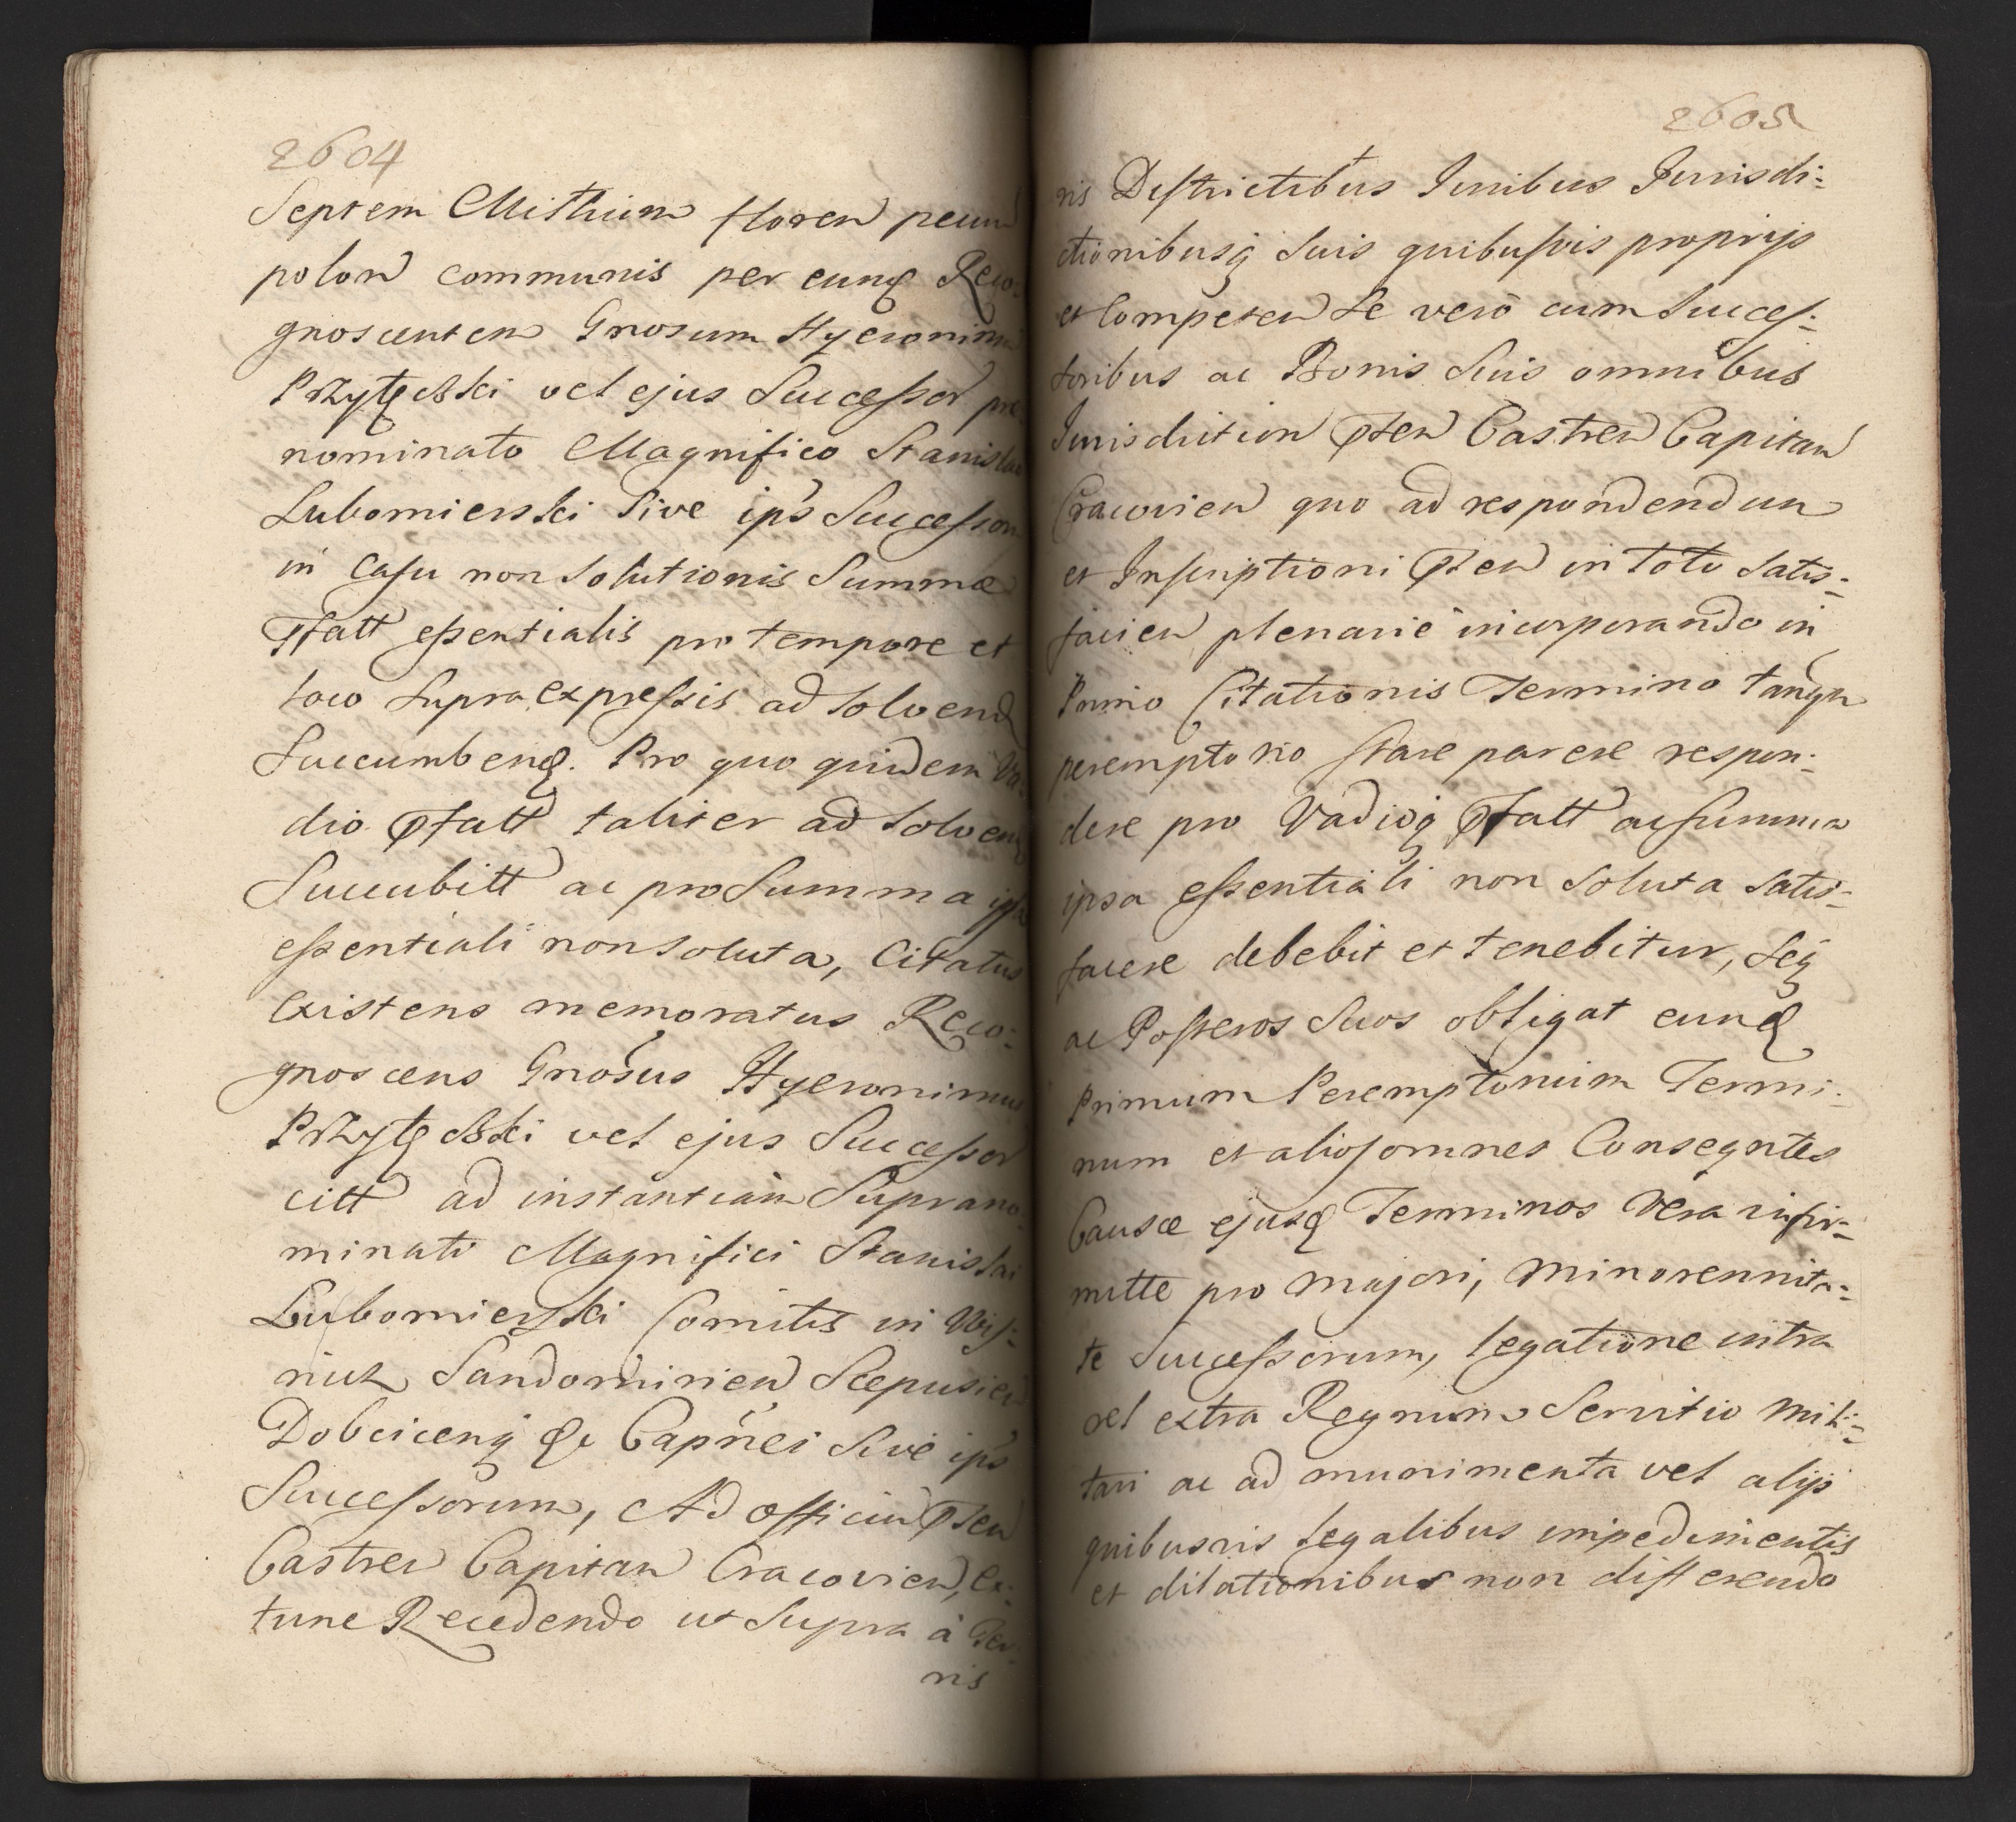 2604
Septem Millium floren pecun
polon communis per eunq Reco-
gnoscenten Gnosum Hyeronimu
Przyłęcski vel ejus Successor pre
nominato Magnifico Stanislao
Lubomierski Sive ips Successor
in casu non solutionis Summæ
Pfatt essentialis pro tempore et
loco Supra expressis ad solvend
Succumbend. Pro quo quidem Va-
dio Pfatt taliter ad solvend
Succubitt ac pro Summa ipsa
essentiali non soluta, Citatus
Existens memoratus Reco-
gnoscens Gnosus Hyeronimus
Przyłęcski vel ejus Successor
citt ad instantiam Suprano-
minati Magnifici Stanislai
Lubomierski Comitis in Wis-
nicz Sandomirien Scepusien
Dobcicenq &c Capnei Sive ips
Successorum, Ad officiu Pten
Castren Capitan Cracovien, Ex-
tunc Recedendo ut Supra à Ter-
ris
2605
ris Districtibus Juribus Jurisdi-
ctionibusq Suis quibusvis proprijs
et Competen Se vero cum Succes-
soribus ac Bonis Suis omnibus
Jurisdiction Pten Castren Capitan
Cracovien quo ad respondendum
et Inscriptioni Pten in toto Satis-
facien plenarie incorporando in
Primo Citationis Termino tanqu
peremptorio stare parere respon-
dere pro Vadioq Pfatt ac summa
ipsa essentiali non soluta Satis-
facere debebit et tenebitur, Seq
ac Posteros Suos obligat eunq
Primum Peremptorium Termi-
num et alios omnes Conseqntes
Causæ ejusq Terminos Vera infir-
mitte pro majori, Minorennita-
te Successorum, legatione intra
vel extra Regnum Servitio mili-
tari ac ad munimenta vel alijs
quibusvis legalibus impedimentis
et dilationibus non differendo